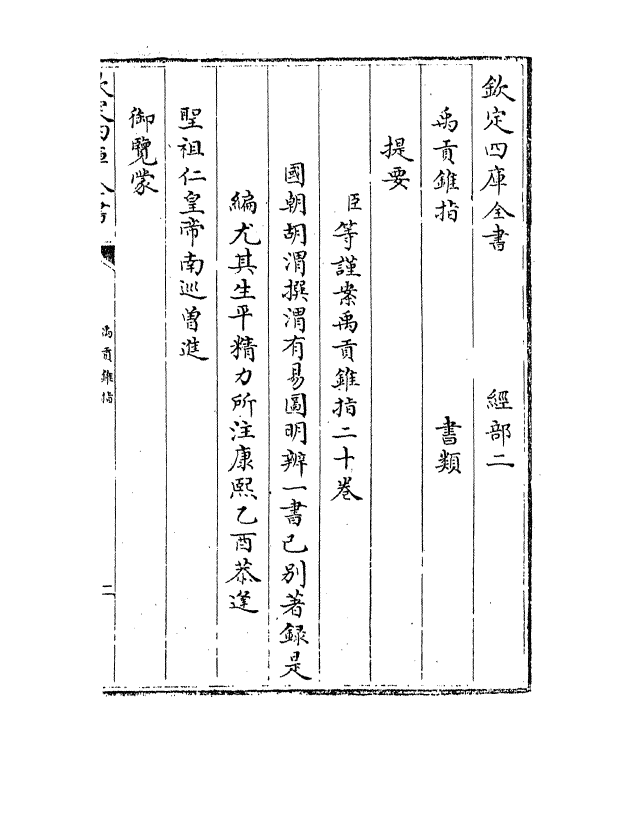 欽定四庫全書 經部二
禹貢錐指 書類
提要
臣等謹案禹貢錐指二十卷
國朝胡渭撰渭有易圖明辨一書已别著錄是
編尤其生平精力所注康熙乙酉恭逢
聖祖仁皇帝南巡曽進
御覽蒙
欽定四庫全書
禹貢錐指
二